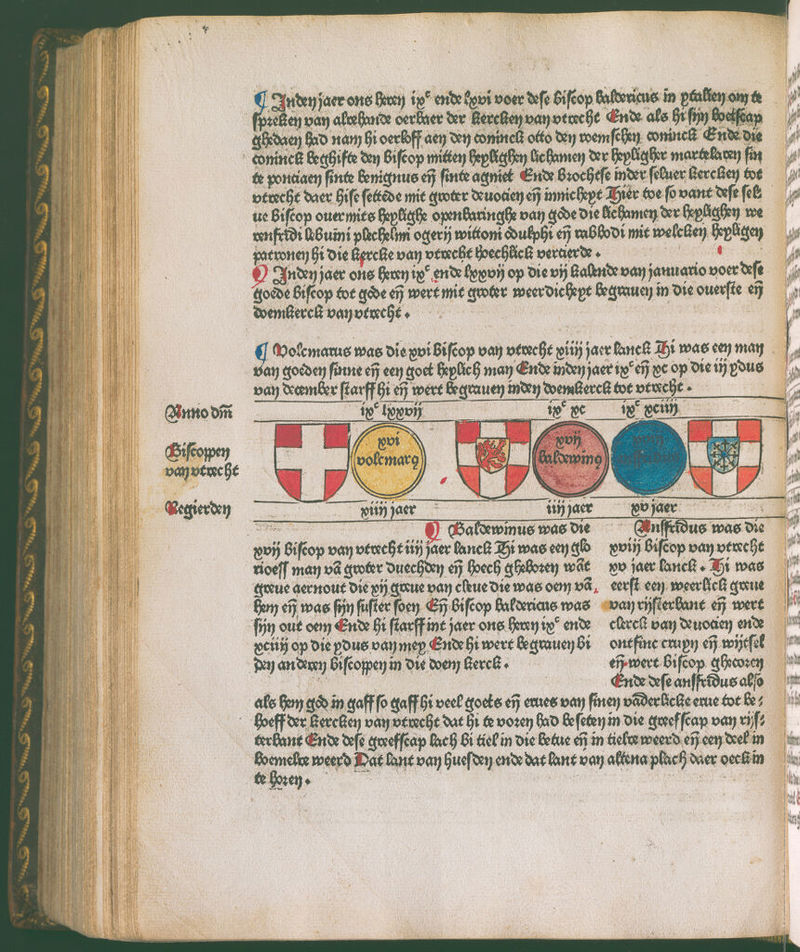 ¶ Inden jaer ons heren ixᶜ ende lxvi voer dese biscop baldericus in ytalien om te
spreken van alrehande oerbaer der kercken van vtrecht Ende als hi sijn boetscap
ghedaen had nam hi oerloff aen den coninck otto den roemschen coninck Ende die
coninck beghifte den biscop mitten heylighen lichamen der heyligher martelaren sin
te ponciaen sinte benignus eñ sinte agniet Ende brochtse inder seluer kercken tot
vtrecht daer hise settede mit groter deuocien eñ innicheyt Hier toe so vant dese sel
ue biscop ouermits heylighe openbaringhe van gode die lichamen der heylighen we
renfridi lebuini plechelmi ogerij wittoni odulphi eñ rabbodi mit welcken heyligen
patronen hi die kercke van vtrecht hoechlick vercierde .
¶ Inden jaer ons heren ixᶜ ende lxxvij op die vij kalende van januario voer dese
goede biscop tot gode eñ wert mit groter weerdicheyt begrauen in die ouerste eñ
doemkerck van vtrecht .
¶ Volcmarus was die xvi biscop van vtrecht xiiij jaer lanck Hi was een man
van goeden sinne eñ een goet heylich man Ende inden jaer ixᶜ eñ xc op die iij ydus
van december starff hi eñ wert begrauen inden doemkerck tot vtrecht .
Anno dm̄ ixᶜ lxxvij ixᶜ xc ixᶜ xciiij
Biscoppen
van vtrecht
xvi
volcmarꝯ
xvij
baldewinꝯ
xviij
Regierden xiiij jaer iiij jaer xv jaer
¶ Baldewinus was die
xvij biscop van vtrecht iiij jaer lanck Hi was een glo
rioess man vā groter duechden eñ hoech gheboren wāt
greue aernout die xij greue van cleue die was oem vā
hem eñ was sijn suster soen Eñ biscop baldericus was
sijn out oem Ende hi starff int jaer ons heren ixᶜ ende
xciiij op die ydus van mey Ende hi wert begrauen bi
den anderen biscoppen in die doem kerck .
Ansfridus was die
xviij biscop van vtrecht
xv jaer lanck . Hi was
eerst een weerlick greue
van rijsterbant eñ wert
clerck van deuocien ende
ontfinc cruyn eñ wijtsel
eñ wert biscop ghecoren
Ende dese ansfridus also
als hem god in gaff so gaff hi veel goets eñ erues van sinen vaderlicke erue tot be⸗
hoeff der kercken van vtrecht dat hi te voren had beseten in die greefscap van rijs⸗
terbant Ende dese greefscap lach bi tiel in die betue eñ in tielre weerd eñ een deel in
boemelre weerd Dat lant van huesden ende dat lant van altena plach daer oeck in
te horen .